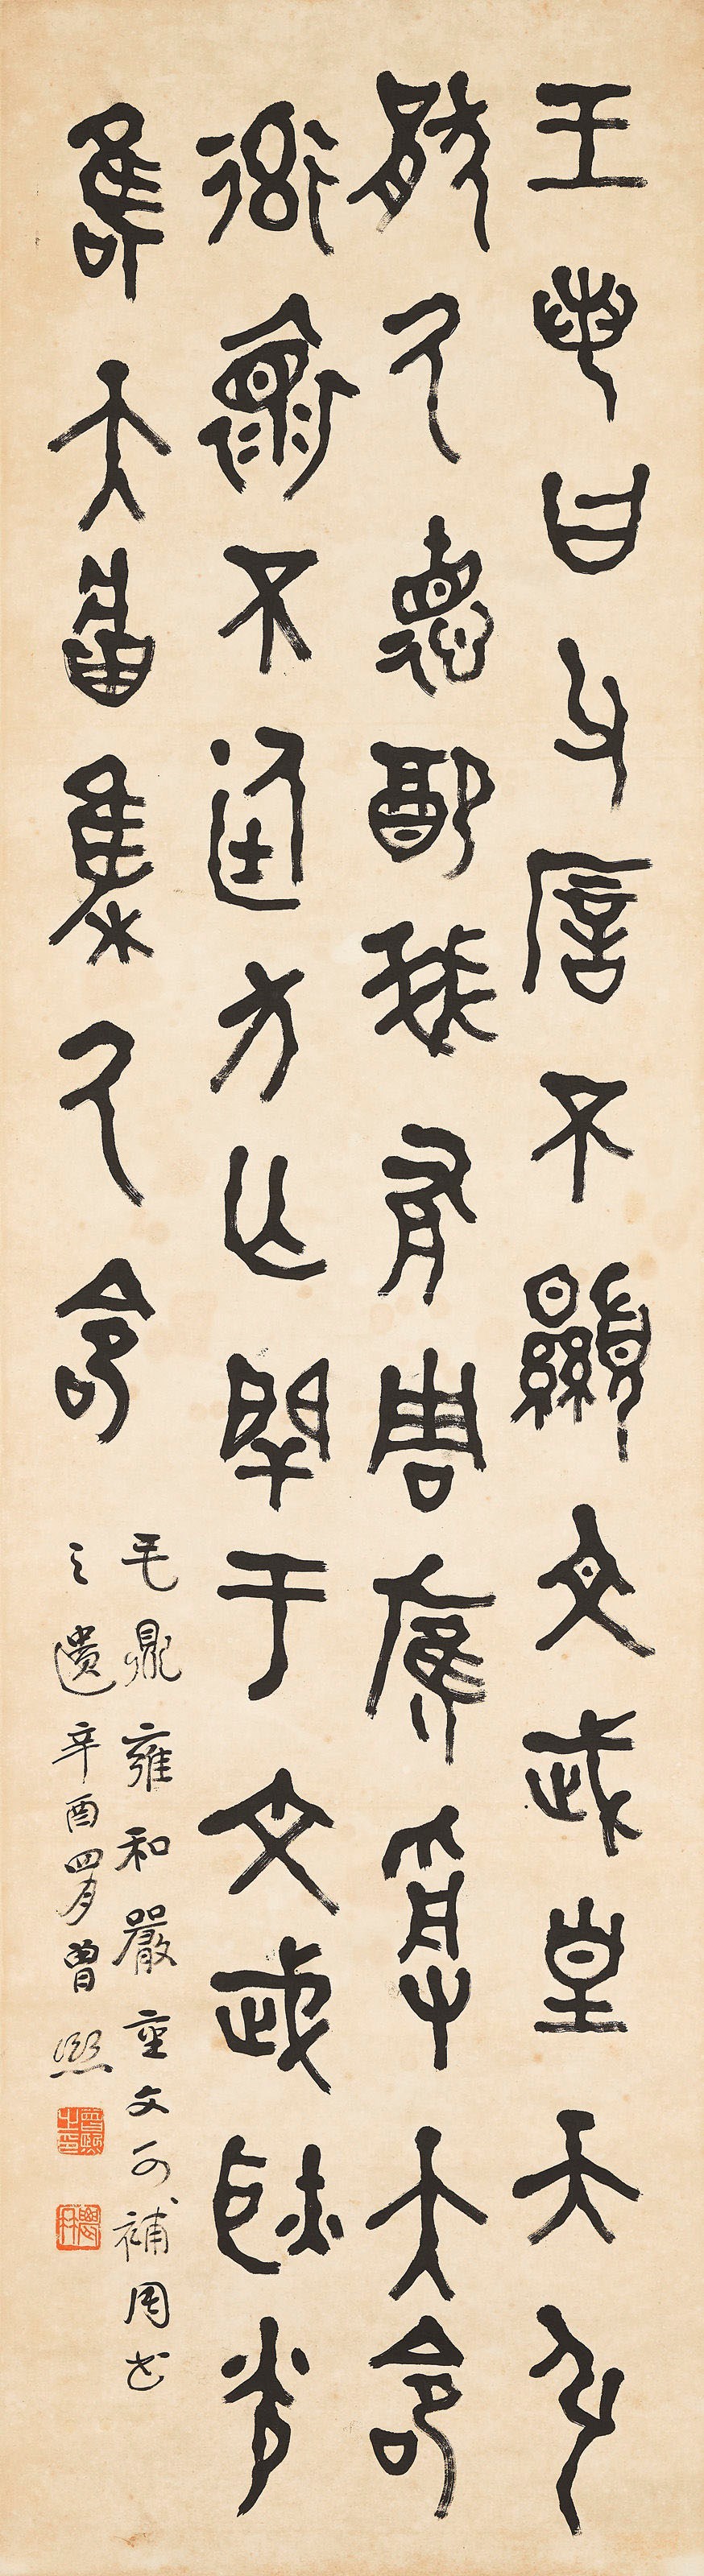 王若曰父㕌不顯文武皇天弘
猒氒德配我有周膺受大命
率懷不廷方亡閈于文武耿光
唯天將集氒命
毛鼎雍和嚴重文可補周書
之遺辛酉四月曾熙
曾熙之印
農髯